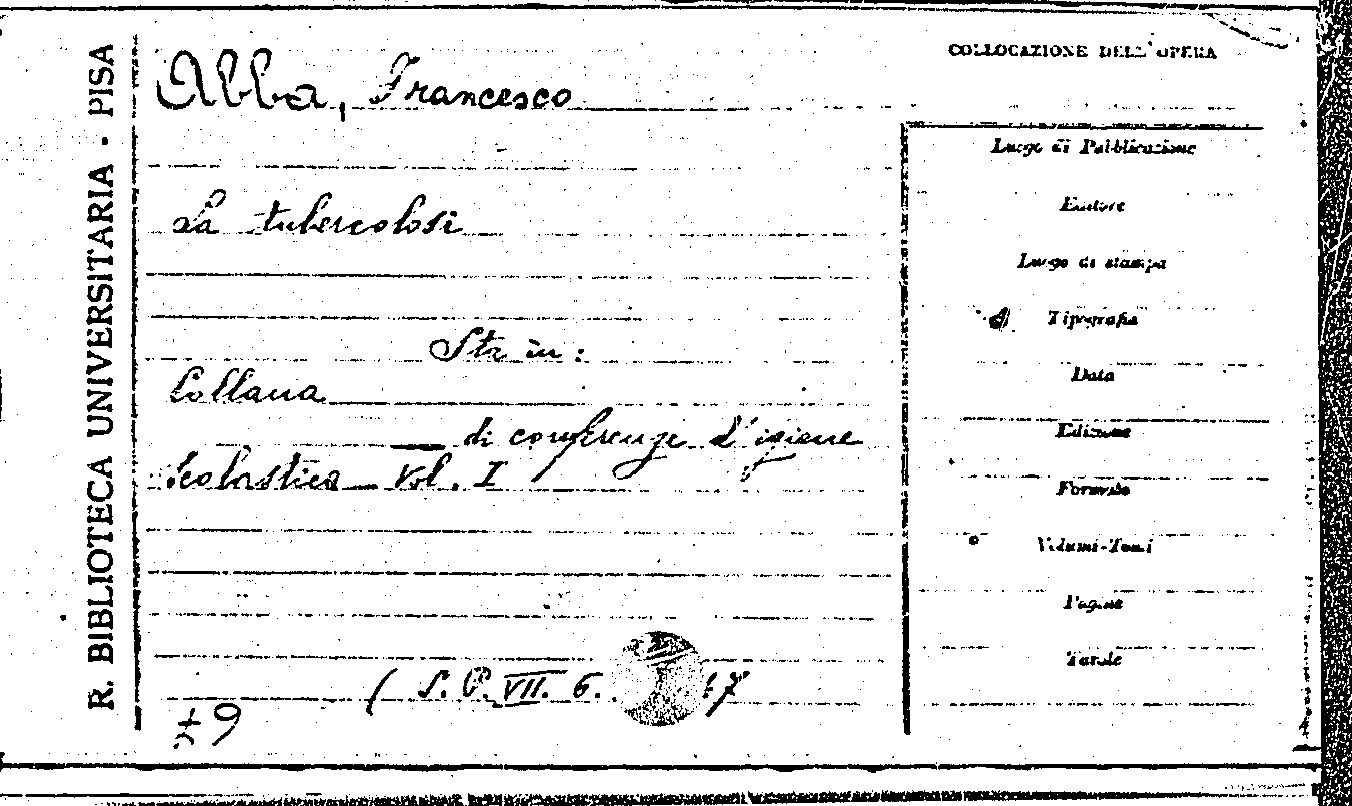 R. BIBLIOTECA UNIVERSITARIA - PISA
Abba, Francesco
La tubercolosi
Sta in:
Collana
di conferenze d'igiene
scolastica Vol. I
( S. P. VII. 6.
COLLOCAZIONE DELL'OPERA
Luogo di Pubblicazione
Editore
Luogo di stampa
Tipografia
Data
Edizione
Formato
Volumi-Tomi
Pagine
Tavole